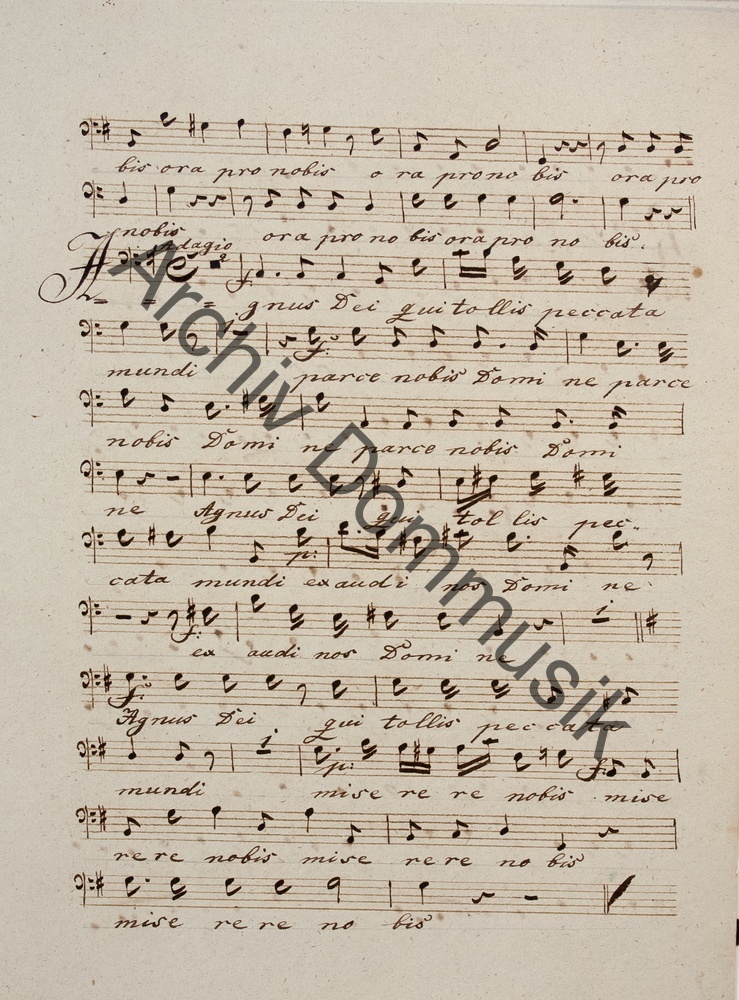 bis ora pro nobis o ra pro no bis ora pro
nobis ora pro no bis ora pro no bis.
Adagio
A - - = gnus Dei qui tollis peccata
mundi parce nobis Domi ne parce
nobis Domi ne parce nobis Domi
ne Agnus Dei qui tol lis pec=
cata mundi exaudi nos Domi ne
ex audi nos Domi ne
Agnus Dei qui tollis pec ca ta
mundi mise re re nobis mise
re re nobis mise re re no bis
mise re re no bis
Archiv Dommusik